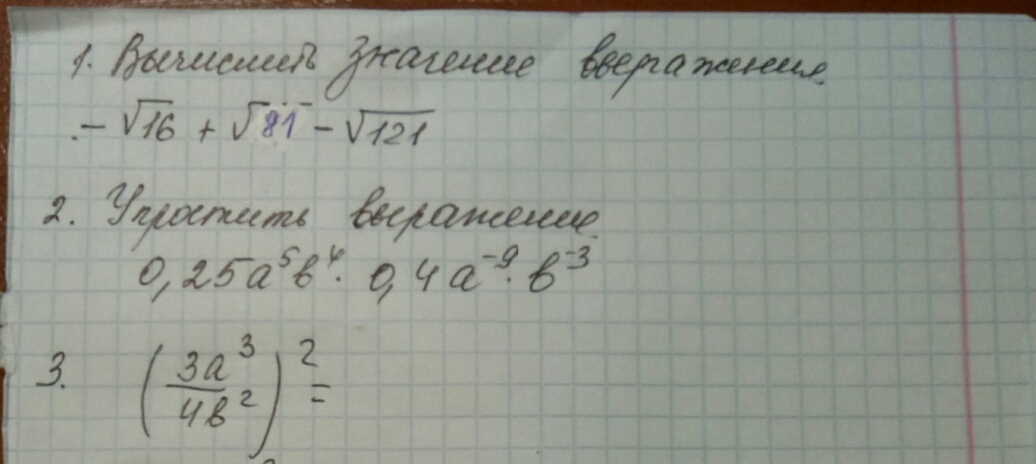 1. Вычислить значение ввератения
.- √16 + √81 - √121
2. Упростить выражение
0,25a⁵b⁴ · 0,4a⁻⁹ · b⁻³
3. (3a³/4b²)² =